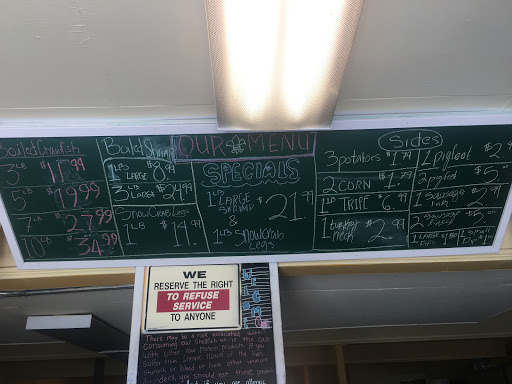 OUR MENU
Boiled Crawfish
3 LB $11.99
5 LB $19.99
7 LB $27.99
10 LB $34.99
Boiled Shrimp
1 LB LARGE $8.99
3 LBS LARGE $24.99
Snow Crab Legs
1 LB $14.99
SPECIALS
1 LB LARGE
Shrimp
&
1 LB Snow Crab
Legs
$21.99
Sides
3 potatoes $1.79
2 CORN $1.79
1 LB TRIPE $6.99
1 turkey
neck $2.99
1 pigfeet $2.99
2 pigfeet $5.00
1 Sausage
link $2.99
2 Sausage
links $5.00
1 LARGE
Dip
1 Small
Dip
WE
RESERVE THE RIGHT
TO REFUSE
SERVICE
TO ANYONE
There may be a risk associated with
consuming raw shellfish as is the case
with other raw protein products. If you
suffer from chronic illness of the liver,
stomach or blood or have other immune